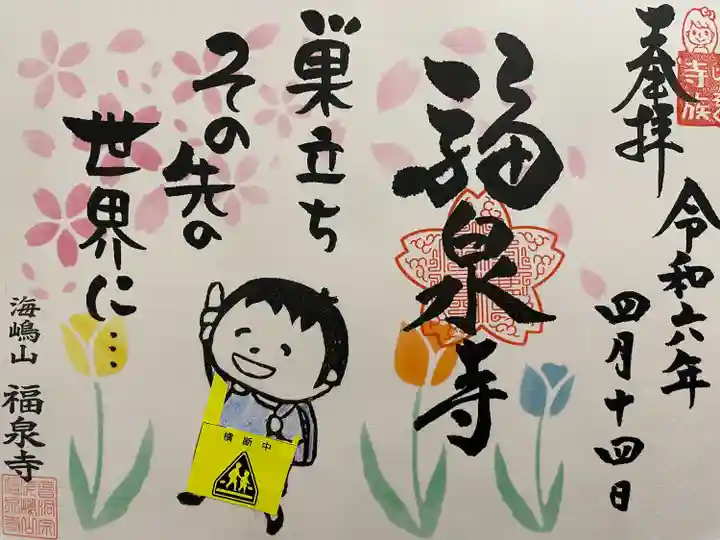 奉拝
寺族
令和六年
四月十四日
福泉寺
巣立ち
その先の
世界に…
海嶋山 福泉寺
横断中